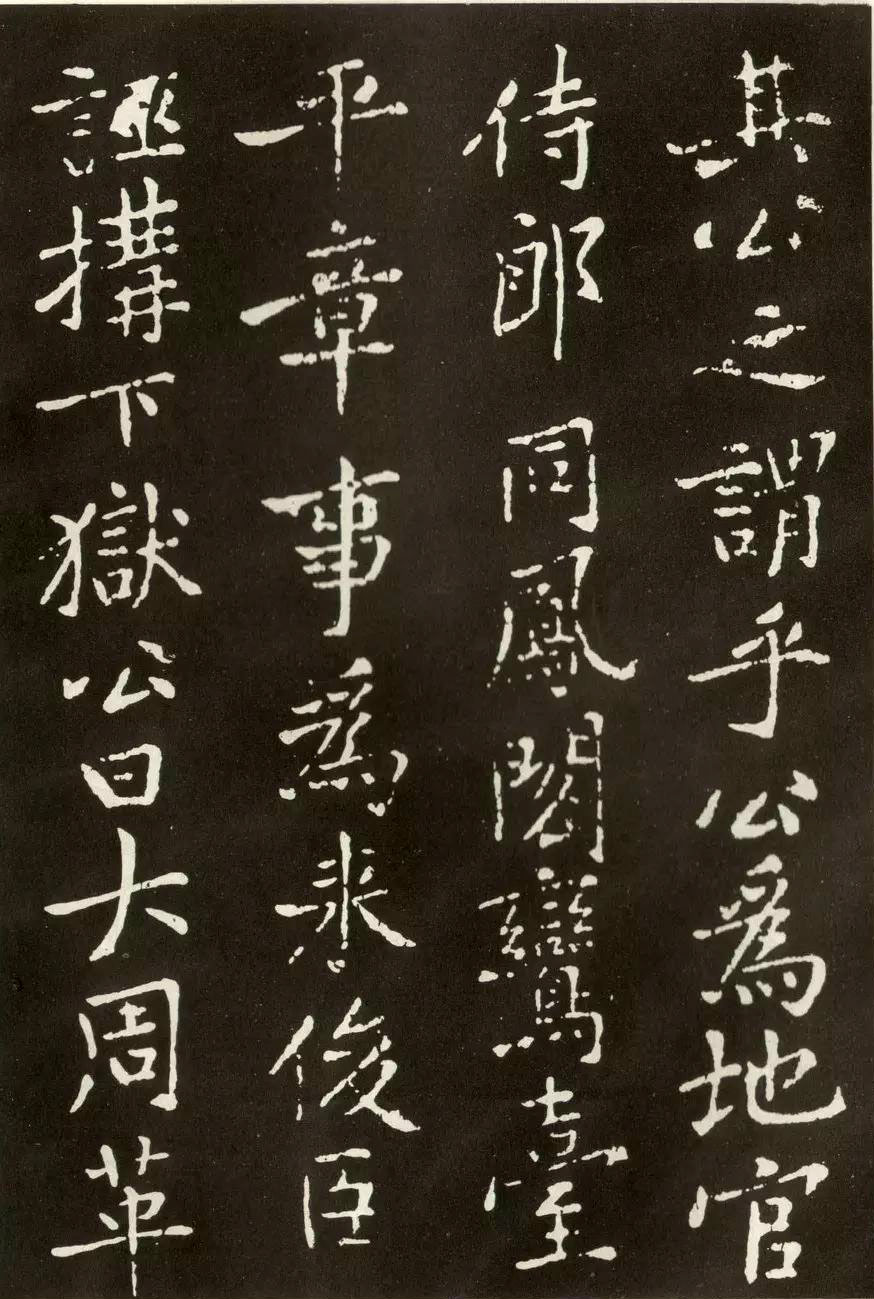 其公之謂乎公爲地官
侍郎同鳳閣鸞臺
平章事爲来俊臣
誣搆下獄公曰大周革